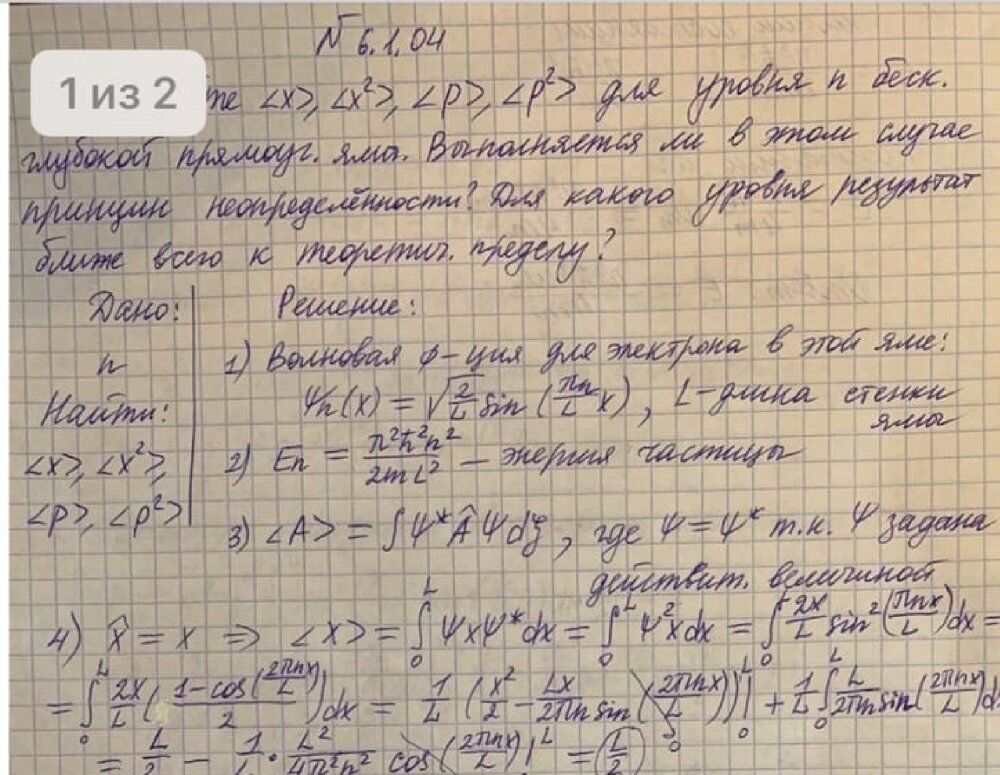 N 6.1.04
1 из 2
те <x>, <x²>, <p>, <p²> для уровня n беск.
глубокой прямоуг. ямы. Выполняется ли в этом случае
принцип неопределённости? Для какого уровня результат
ближе всего к теоретич. пределу?
Дано: Решение:
n 1) Волновая ф-ция для электрона в этой яме:
Найти: Ψn(x) = √(2/L) sin (πn/L x), L-длина стенки
ямы
<x>, <x²>, 2) En = π²ħ²n²/2mL² – энергия частицы
<p>, <p²>
3) <A> = ∫Ψ*ÂΨdξ, где Ψ=Ψ* т.к. Ψ задана
действит. величиной
4) x̂ = x ⇒ <x> = ∫₀ᴸ ΨxΨ*dx = ∫₀ᴸ Ψ²xdx = ∫₀ᴸ 2x/L sin²(πnx/L)dx =
= ∫₀ᴸ 2x/L ((1-cos(2πnx/L))/2)dx = 1/L (x²/2 - Lx/2πn sin(2πnx/L))|₀ᴸ + 1/L ∫₀ᴸ L/2πn sin(2πnx/L)d
= L/2 - 1/L · L²/4π²n² cos(2πnx/L)|ᴸ = L/2